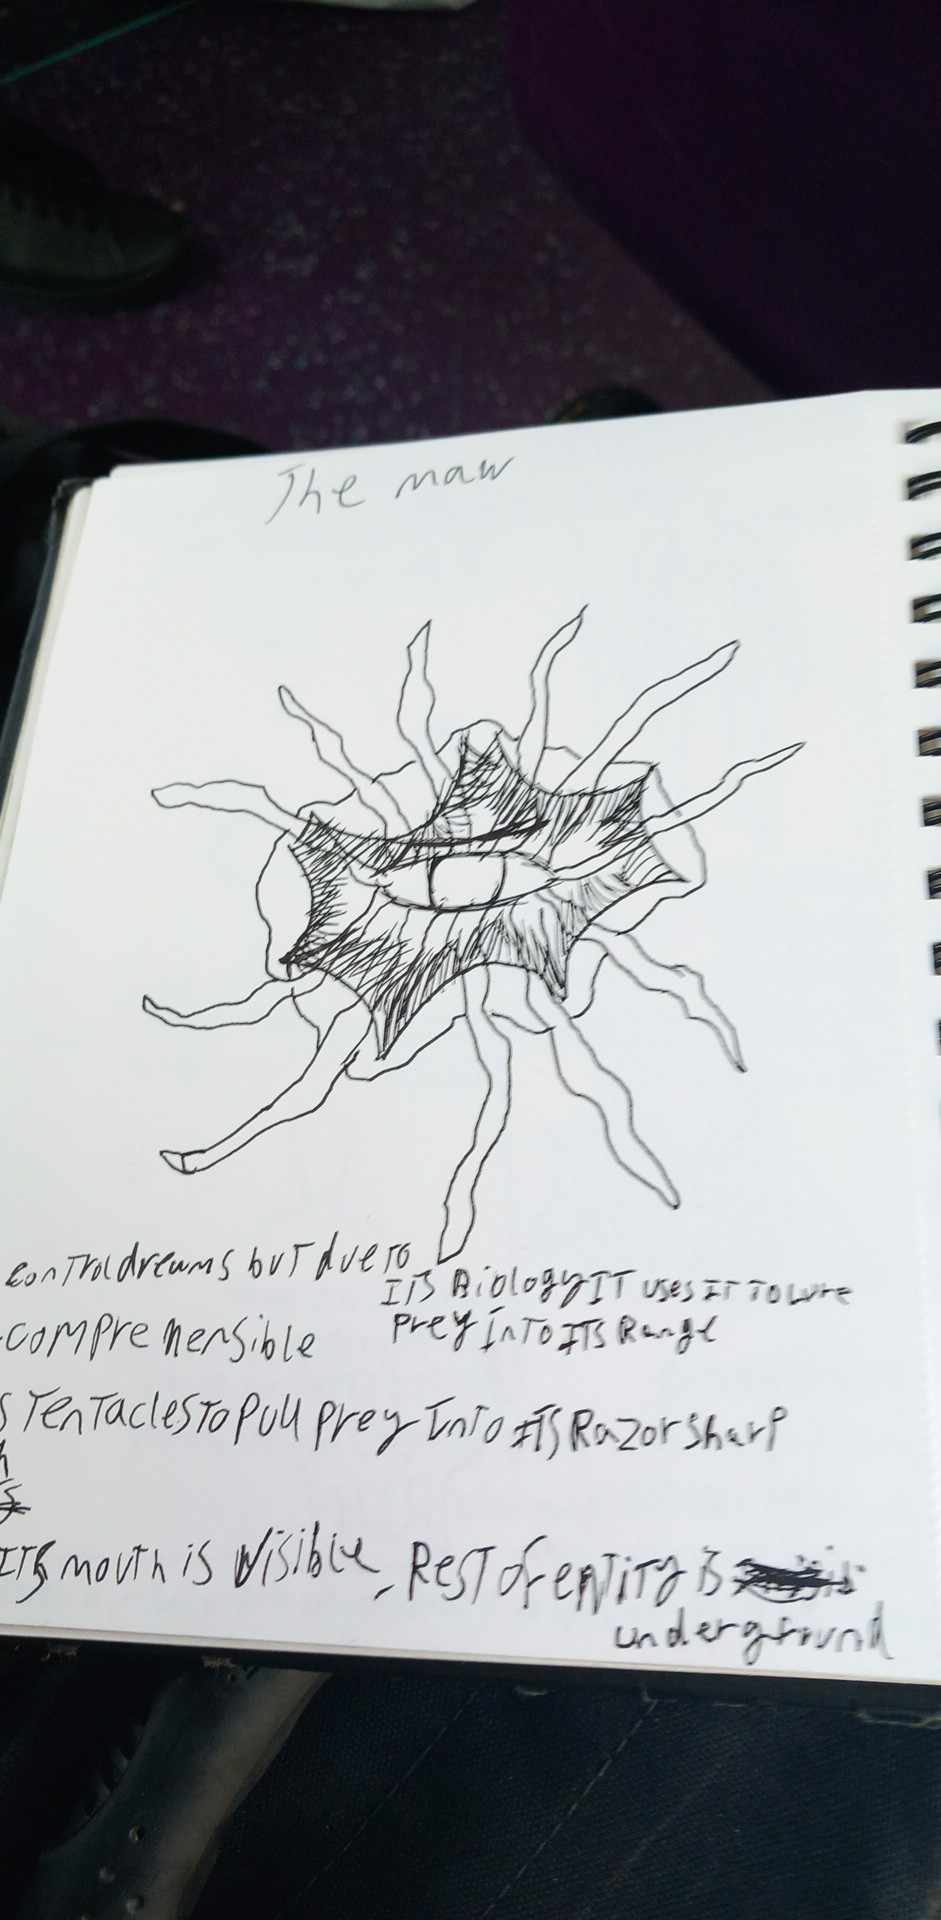 The maw
control dreams but due to
ITS Biology IT uses IT TO Lure
prey InTo ITS Range
comprehensible
s TenTacles To pull prey InTo ITS Razor sharp
h
ITS mouth is visible, Rest of entity is
underground